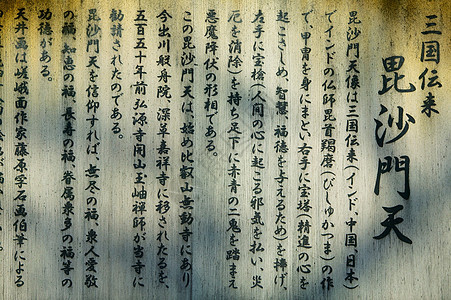 三国伝来
毘沙門天
毘沙門天像は三国伝来(インド、中国、日本)
でインドの仏師毘首羯磨(びしゅかつま)の作
で、甲冑を身にまとい右手に宝塔(精進の心を
起こさしめ、智慧、福徳を与えるため)を捧げ、
左手に宝槍(人間の心に起こる邪気を払い、災
厄を消除)を持ち足下に赤青の二鬼を踏まえ
悪魔降伏の形相である。
この毘沙門天は、始め比叡山無動寺にあり
今出川般舟院、深草嘉祥寺に移されたのを、
五百五十年前弘源寺開山玉岫禅師が当寺に
勧請されたのである。
毘沙門天を信仰すれば、無尽の福、衆人愛敬
の福、知恵の福、長寿の福、眷属衆多の福等の
功徳がある。
天井画は嵯峨面作家藤原孚石画伯筆による